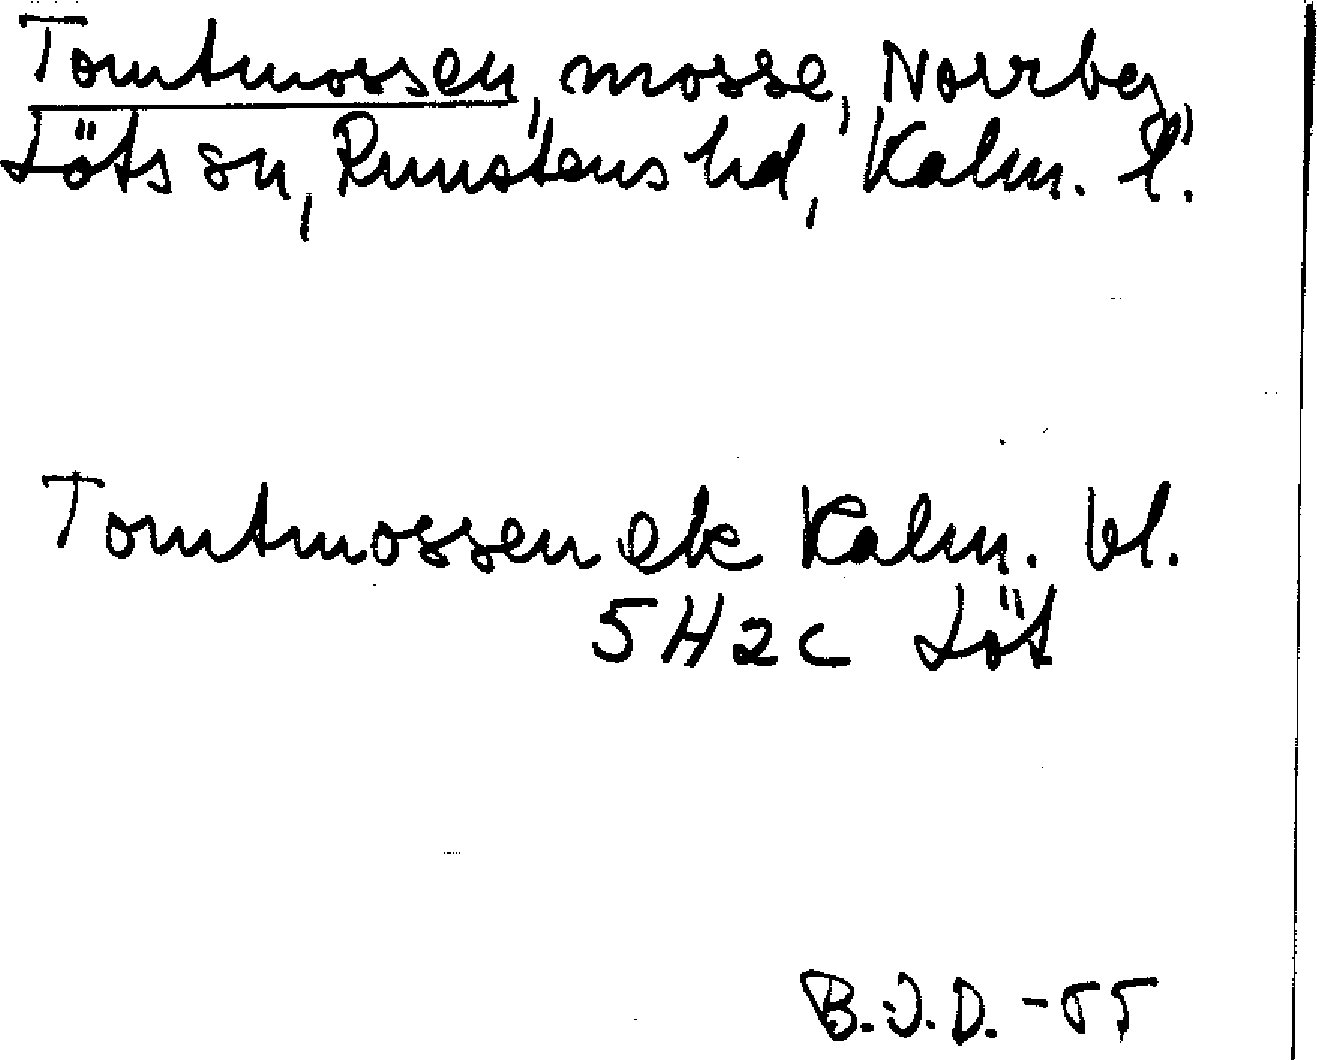 Tomtmossen, mosse, Norrby,
Löts sn, Runstens hd, Kalm. l.
Tomtmossen ek Kalm. bl.
5H2c Löt
B.J.D. -55